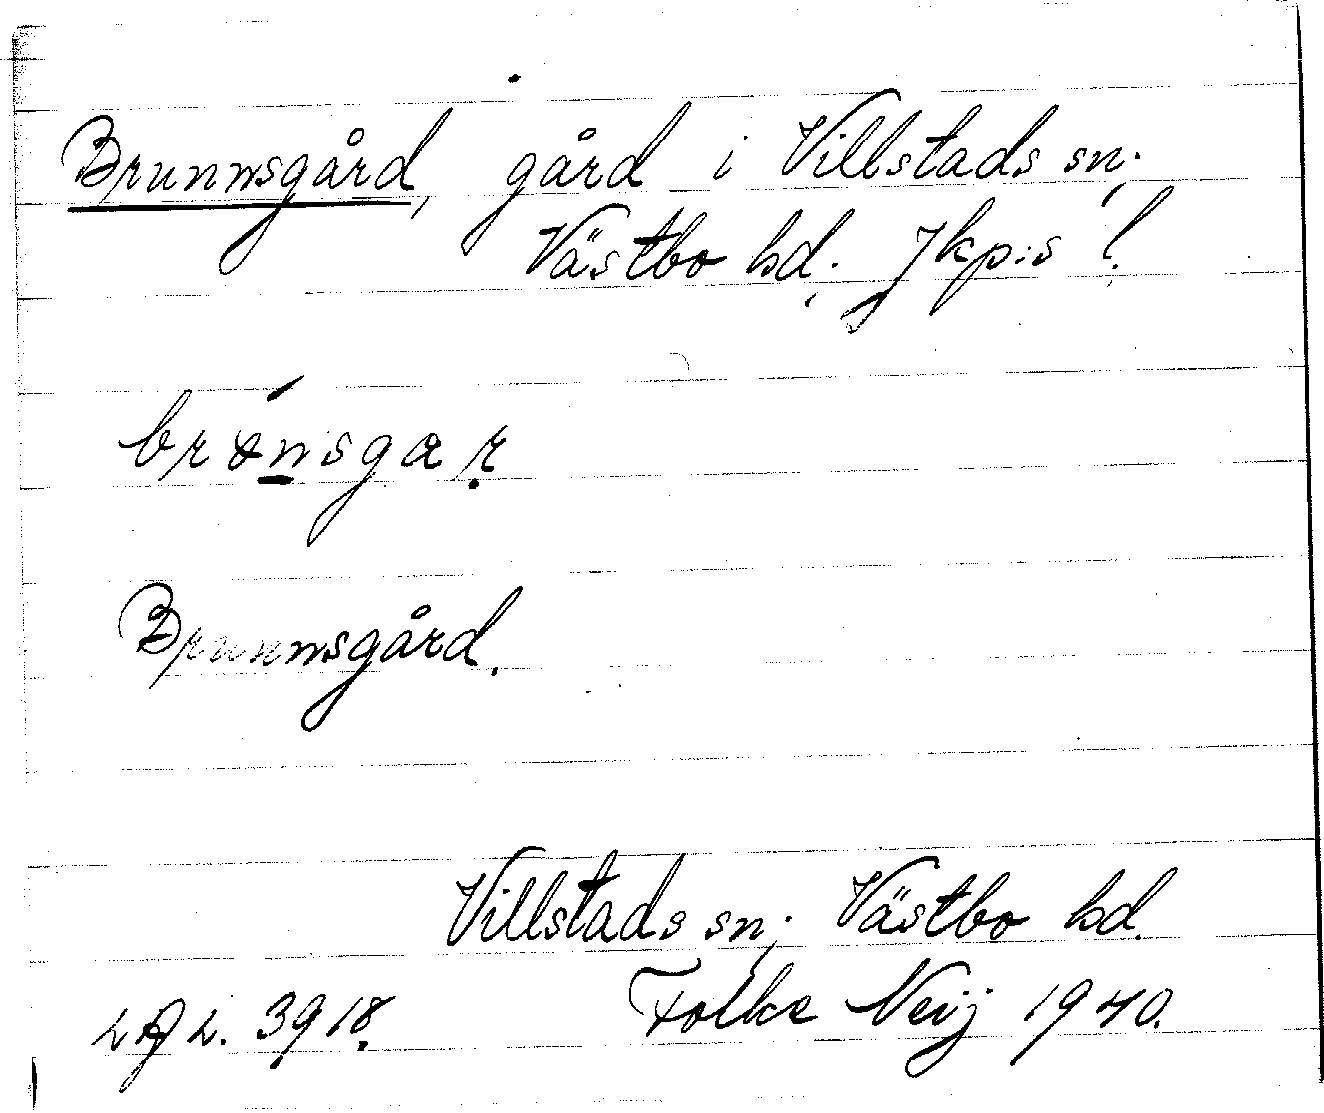 Brunnsgård, gård i Villstads sn;
Västbo hd; Jkp:s l.
brónsgar
Brunnsgård.
Villstads sn; Västbo hd.
Folke Neij 1940.
3918.